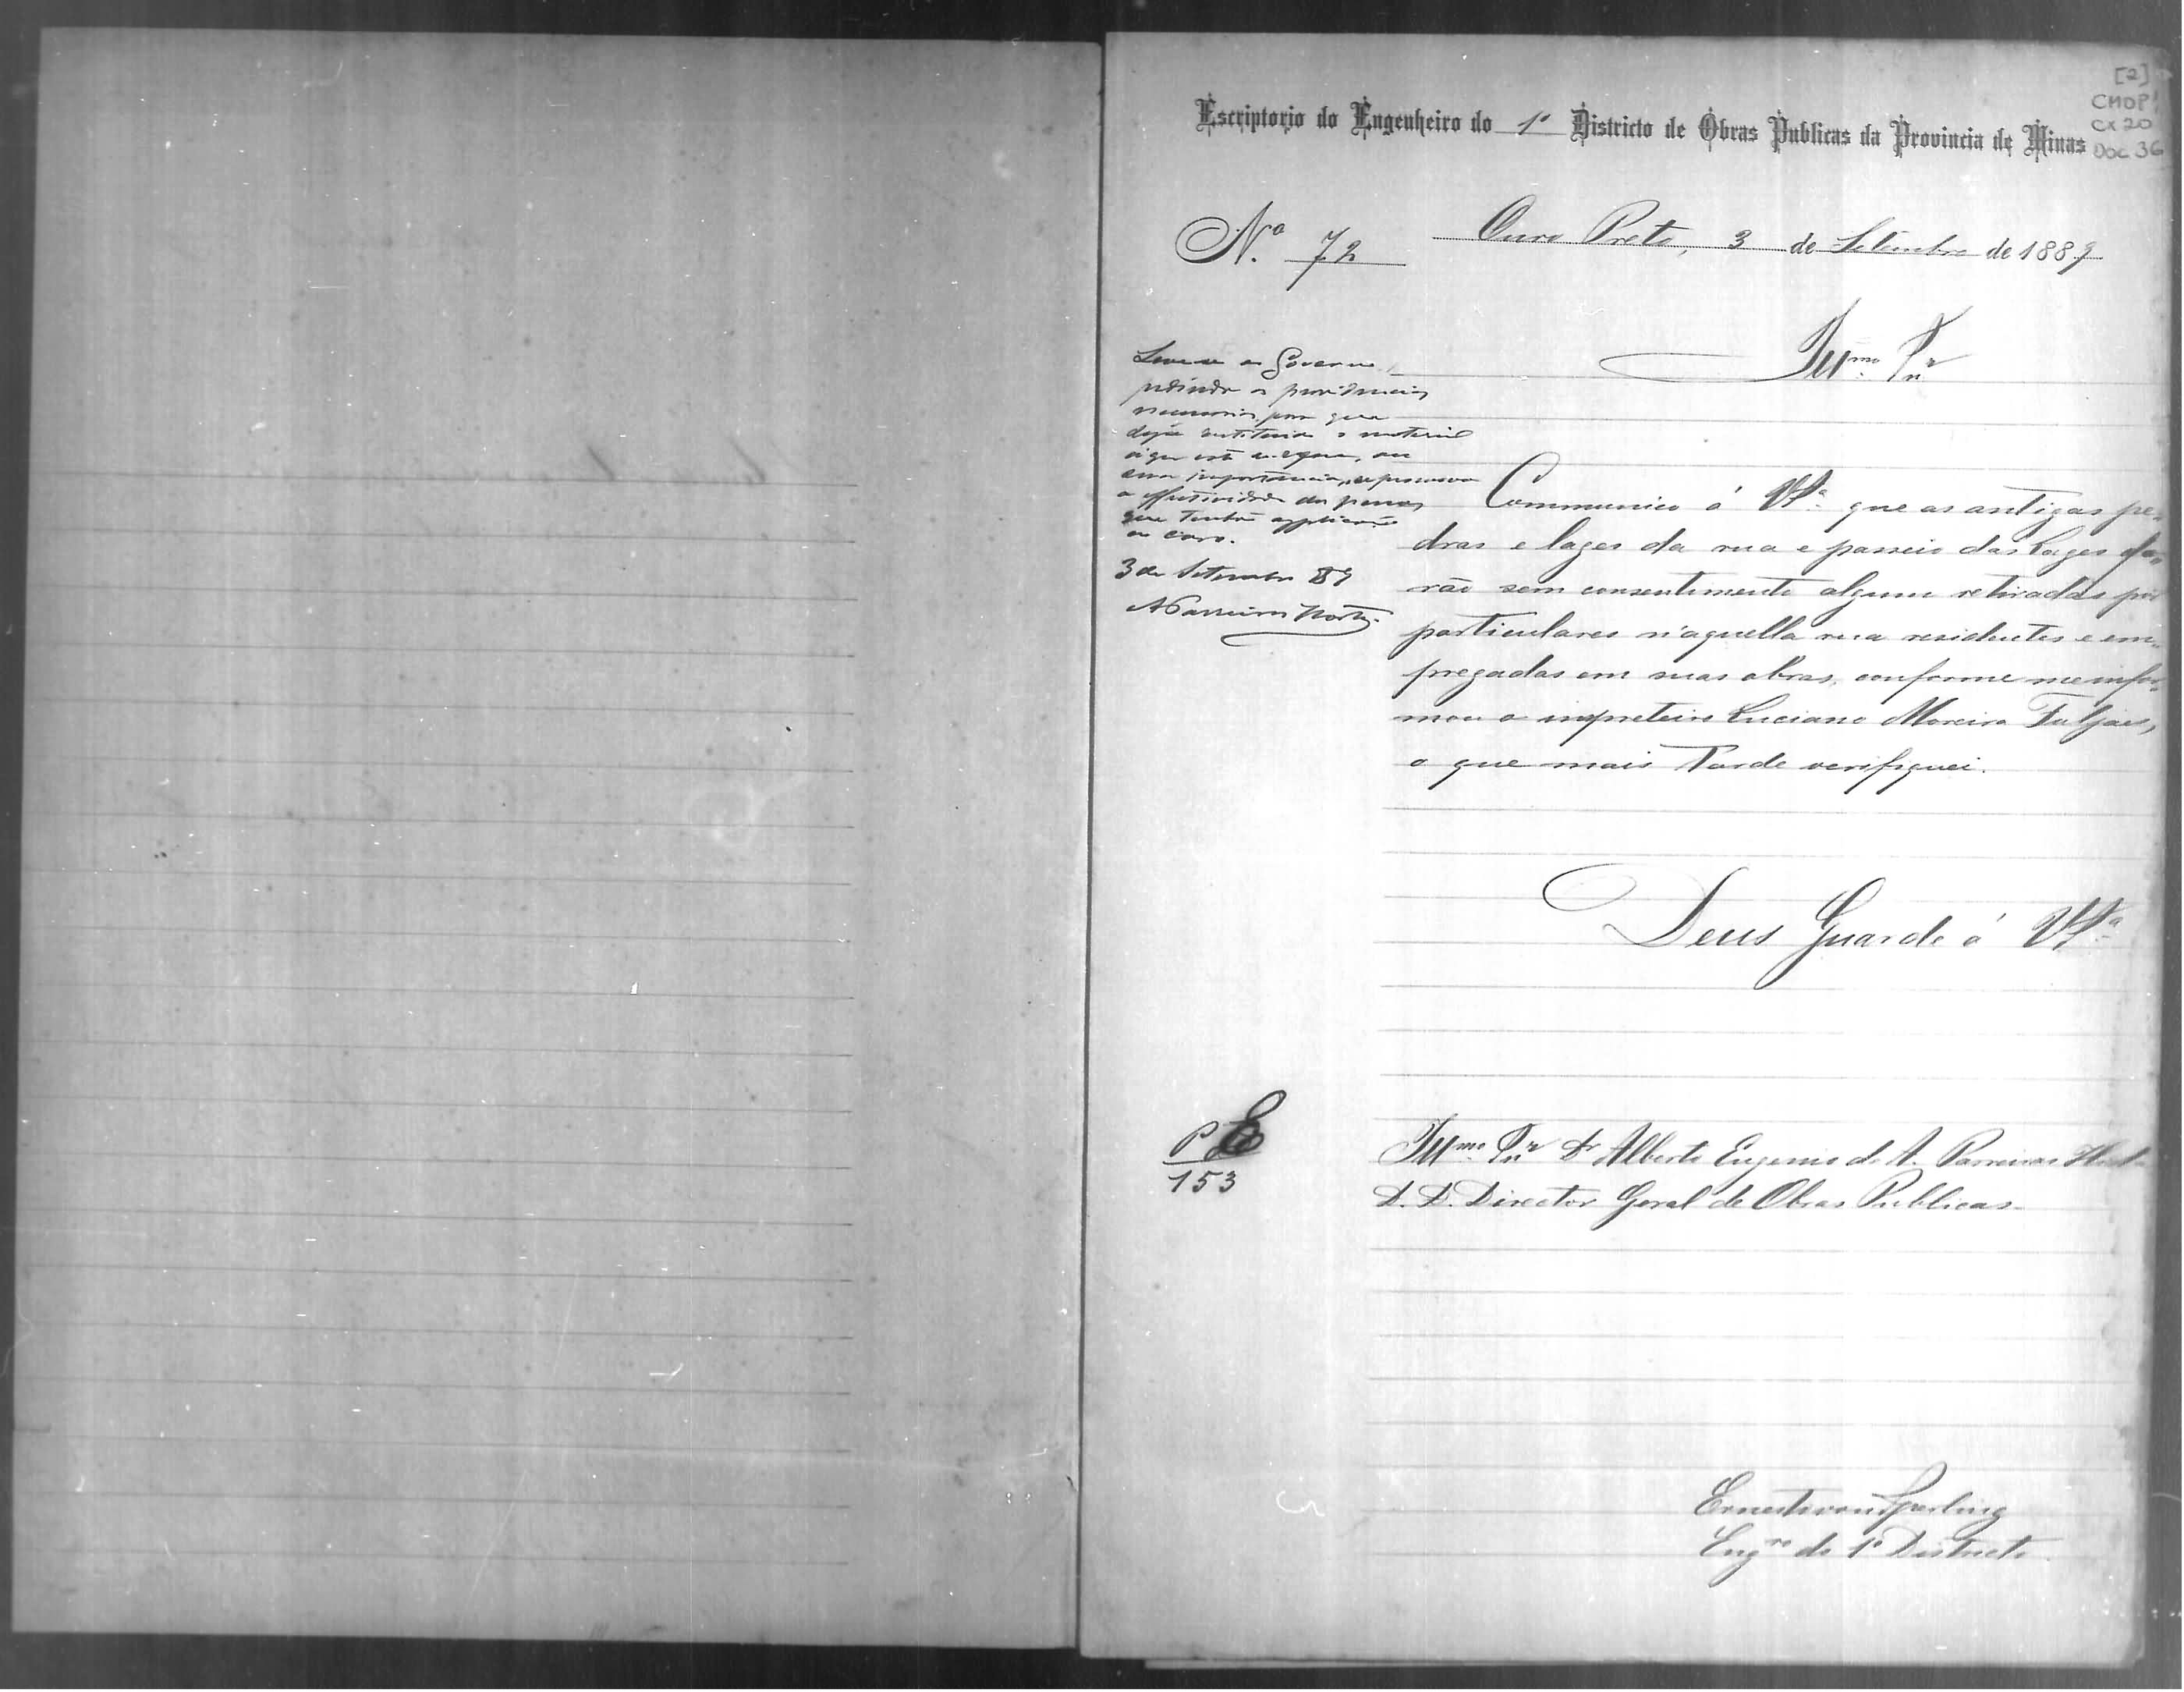 [2]
CMOP!
CX 20
DOC 36
Escriptorio do Engenheiro do 1º Districto de Obras Publicas da Provincia de Minas
Nº 72
Ouro Preto, 3 de Setembro de 1889
Illmo Snr
ao Governo
pedindo as providencias
necessarias para que
seja o material
importancia, e
a effectividade das penas
que tenhão applicação
ao caso.
3 de Setembro 89
AParreiras Horta.
Communico á VSª que as antigas pe-
dras e lages da rua e passeio das Lages fo-
rão sem consentimento algum retiradas por
particulares n'aquella rua residentes e em-
pregadas em suas obras, conforme me infor-
mou o impreteiro Luciano Moreira
o que mais tarde verifiquei.
Deus Guarde á VSª
P E
153
Illmo Snr Dr Alberto Eugenio de A. Parreiras Horta
D. D. Director Geral de Obras Publicas
Ernesto von Sperling
Engro do 1º Districto